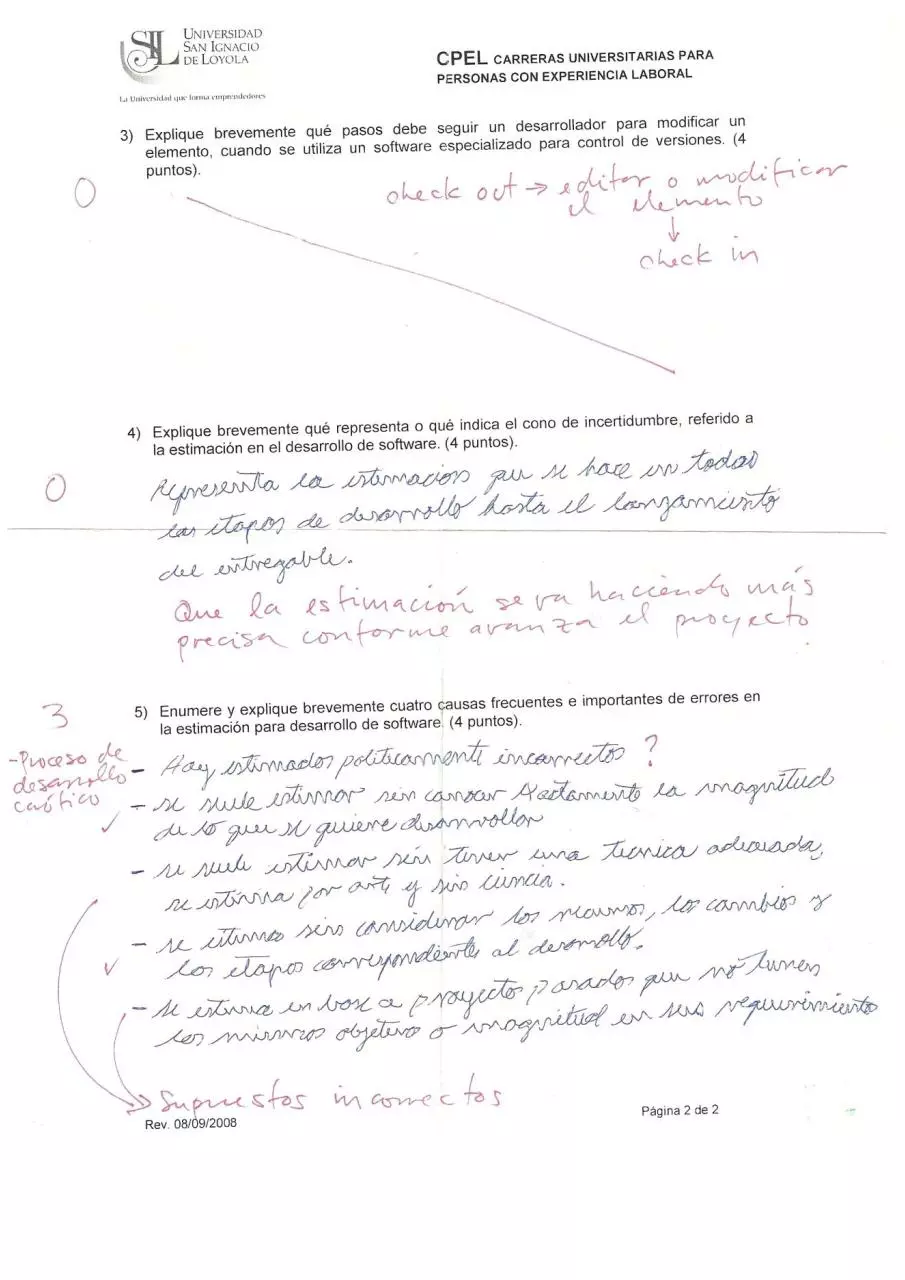 UNIVERSIDAD
SAN IGNACIO
DE LOYOLA
La Universidad que forma emprendedores
CPEL CARRERAS UNIVERSITARIAS PARA
PERSONAS CON EXPERIENCIA LABORAL
3) Explique brevemente qué pasos debe seguir un desarrollador para modificar un
elemento, cuando se utiliza un software especializado para control de versiones. (4
puntos).
0
check out → editar o modificar
el elemento
↓
check in
4) Explique brevemente qué representa o qué indica el cono de incertidumbre, referido a
la estimación en el desarrollo de software. (4 puntos).
0
Representa la estimacion que se hace en todas
las etapas de desarrollo hasta el lanzamiento
del entregable.
Que la estimación se va haciendo más
precisa conforme avanza el proyecto
3
5) Enumere y explique brevemente cuatro causas frecuentes e importantes de errores en
la estimación para desarrollo de software. (4 puntos).
- Proceso de
desarrollo
caótico
- Hay estimados politicamente incorrectos ?
- se suele estimar sin conocer exactamente la magnitud
de lo que se quiere desarrollar
- se suele estimar sin tener una tecnica adecuada,
se estima por arte y sin ciencia.
- se estima sin considerar los recursos, los cambios y
los etapas correspondientes al desarrollo.
- se estima en base a proyectos pasados que no tienen
los mismos objetivo o magnitud en sus requerimiento
Supuestos incorrectos
Rev. 08/09/2008
Página 2 de 2